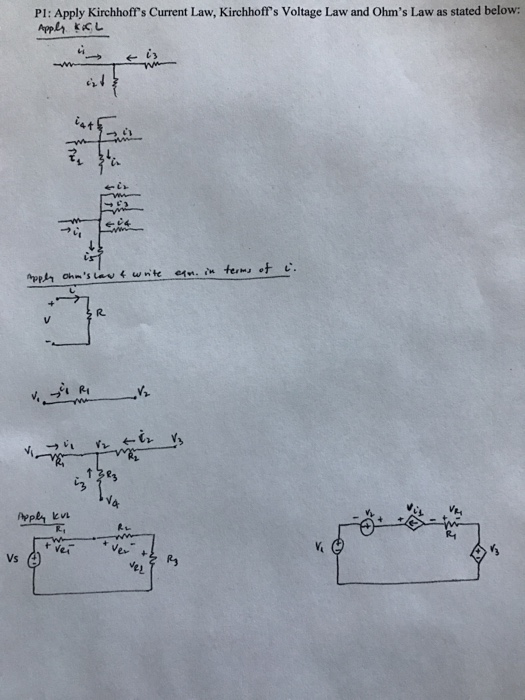 P1: Apply Kirchhoff's Current Law, Kirchhoff's Voltage Law and Ohm's Law as stated below:
Apply KCL
i1 → ← i3
i2 ↓
i4 ↑ → i3
i1 ↓ i2
← i2
→ i3
← i4
→ i1
i5
Apply Ohm's law & write eqn. in terms of i.
i
+
V R
-
V1 → i1 R1 V2
V1 → i1 V2 ← i2 V3
R1 R2
i3 ↑ R3
V4
Apply KVL
R1 R2
+ - + -
Vs + R3
- V2 + + - VR1
V1 R1 V3